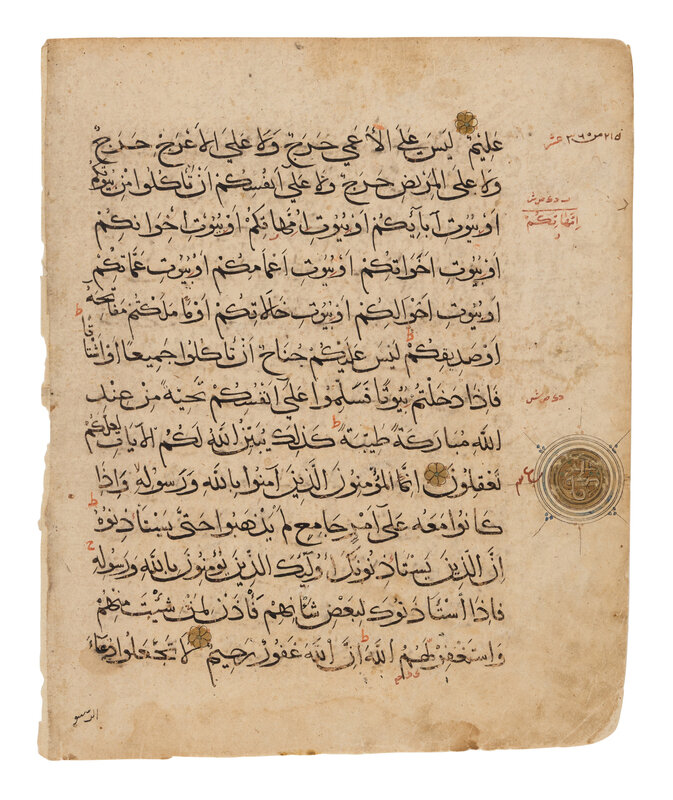 عليم ليس على الأعمى حرج ولا على الأعرج حرج
ولا على المريض حرج ولا على انفسكم ان تاكلوا من بيوتكم
او بيوت آبائكم او بيوت امهاتكم او بيوت اخوانكم
او بيوت اخواتكم او بيوت اعمامكم او بيوت عماتكم
او بيوت اخوالكم او بيوت خالاتكم او ما ملكتم مفاتحه
او صديقكم ليس عليكم جناح ان تاكلوا جميعا او اشتاتا
فاذا دخلتم بيوتا فسلموا على انفسكم تحية من عند
الله مباركة طيبة كذلك يبين الله لكم الآيات لعلكم
تعقلون انما المؤمنون الذين آمنوا بالله ورسوله واذا
كانوا معه على امر جامع لم يذهبوا حتى يستاذنوه
ان الذين يستاذنونك اوليك الذين يؤمنون بالله ورسوله
فاذا استاذنوك لبعض شانهم فأذن لمن شئت منهم
واستغفر لهم الله ان الله غفور رحيم لا تجعلوا دعاء
عشر
امهاتكم